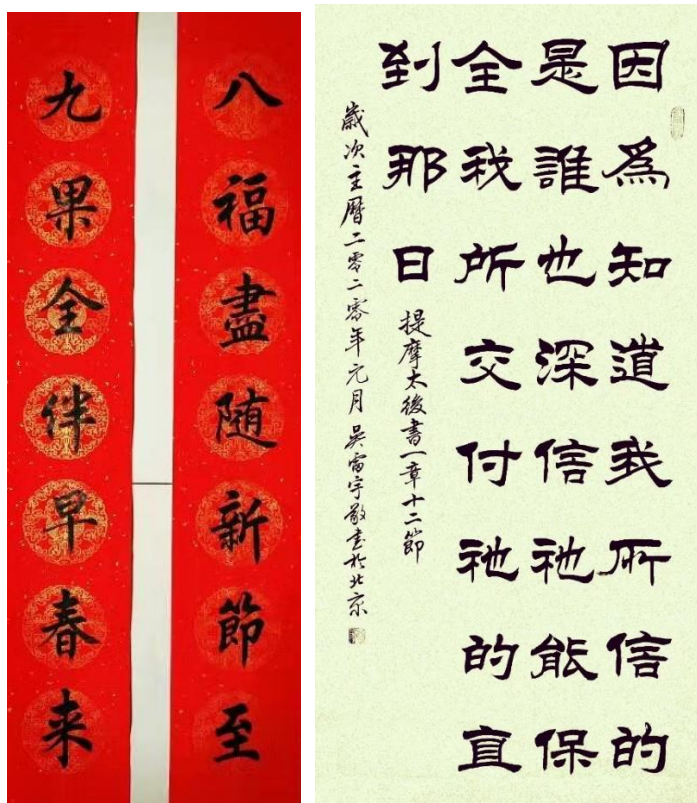 八福盡随新節至
九果全伴早春来
因為知道我所信的
是誰也深信祂能保
全我所交付祂的直
到那日
提摩太後書一章十二節
歲次主曆二零二零年元月 吳雷宇敬書於北京